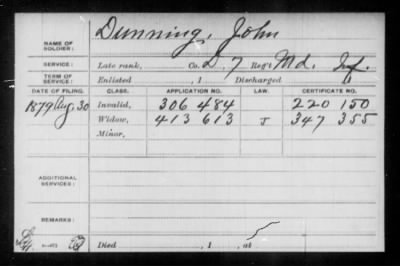 NAME OF SOLDIER: Dunning, John
SERVICE: Late rank, Co. D, 7 Reg't Md. Inf.
TERM OF SERVICE: Enlisted , 1 Discharged , 1
DATE OF FILING. CLASS. APPLICATION NO. LAW. CERTIFICATE NO.
1879 Aug. 30 Invalid, 306 484 220 150
Widow, 413 613 J 347 355
Minor,
ADDITIONAL SERVICES:
REMARKS:
Died , 1 , at